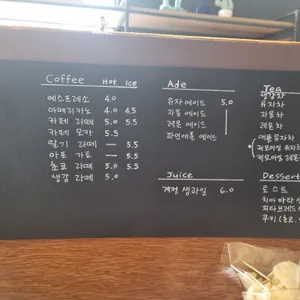 Coffee Hot Ice
에스프레소 4.0
아메리카노 4.0 4.5
카페 라떼 5.0 5.5
카페 모카 5.5
딸기 라떼 — 5.5
아포 가토 — 5.5
초코 라떼 5.0 5.5
생강 라떼 5.0
Ade
유자 에이드 5.0
자몽 에이드
레몬 에이드
파인애플 에이드
Juice
계절 생과일 6.0
Tea
유자차
자몽차
레몬차
애플유자차
캐모마일 유자차
캐모마일 레몬
Dessert
로스트
치아바타
피타브레드
쿠키 (초코.